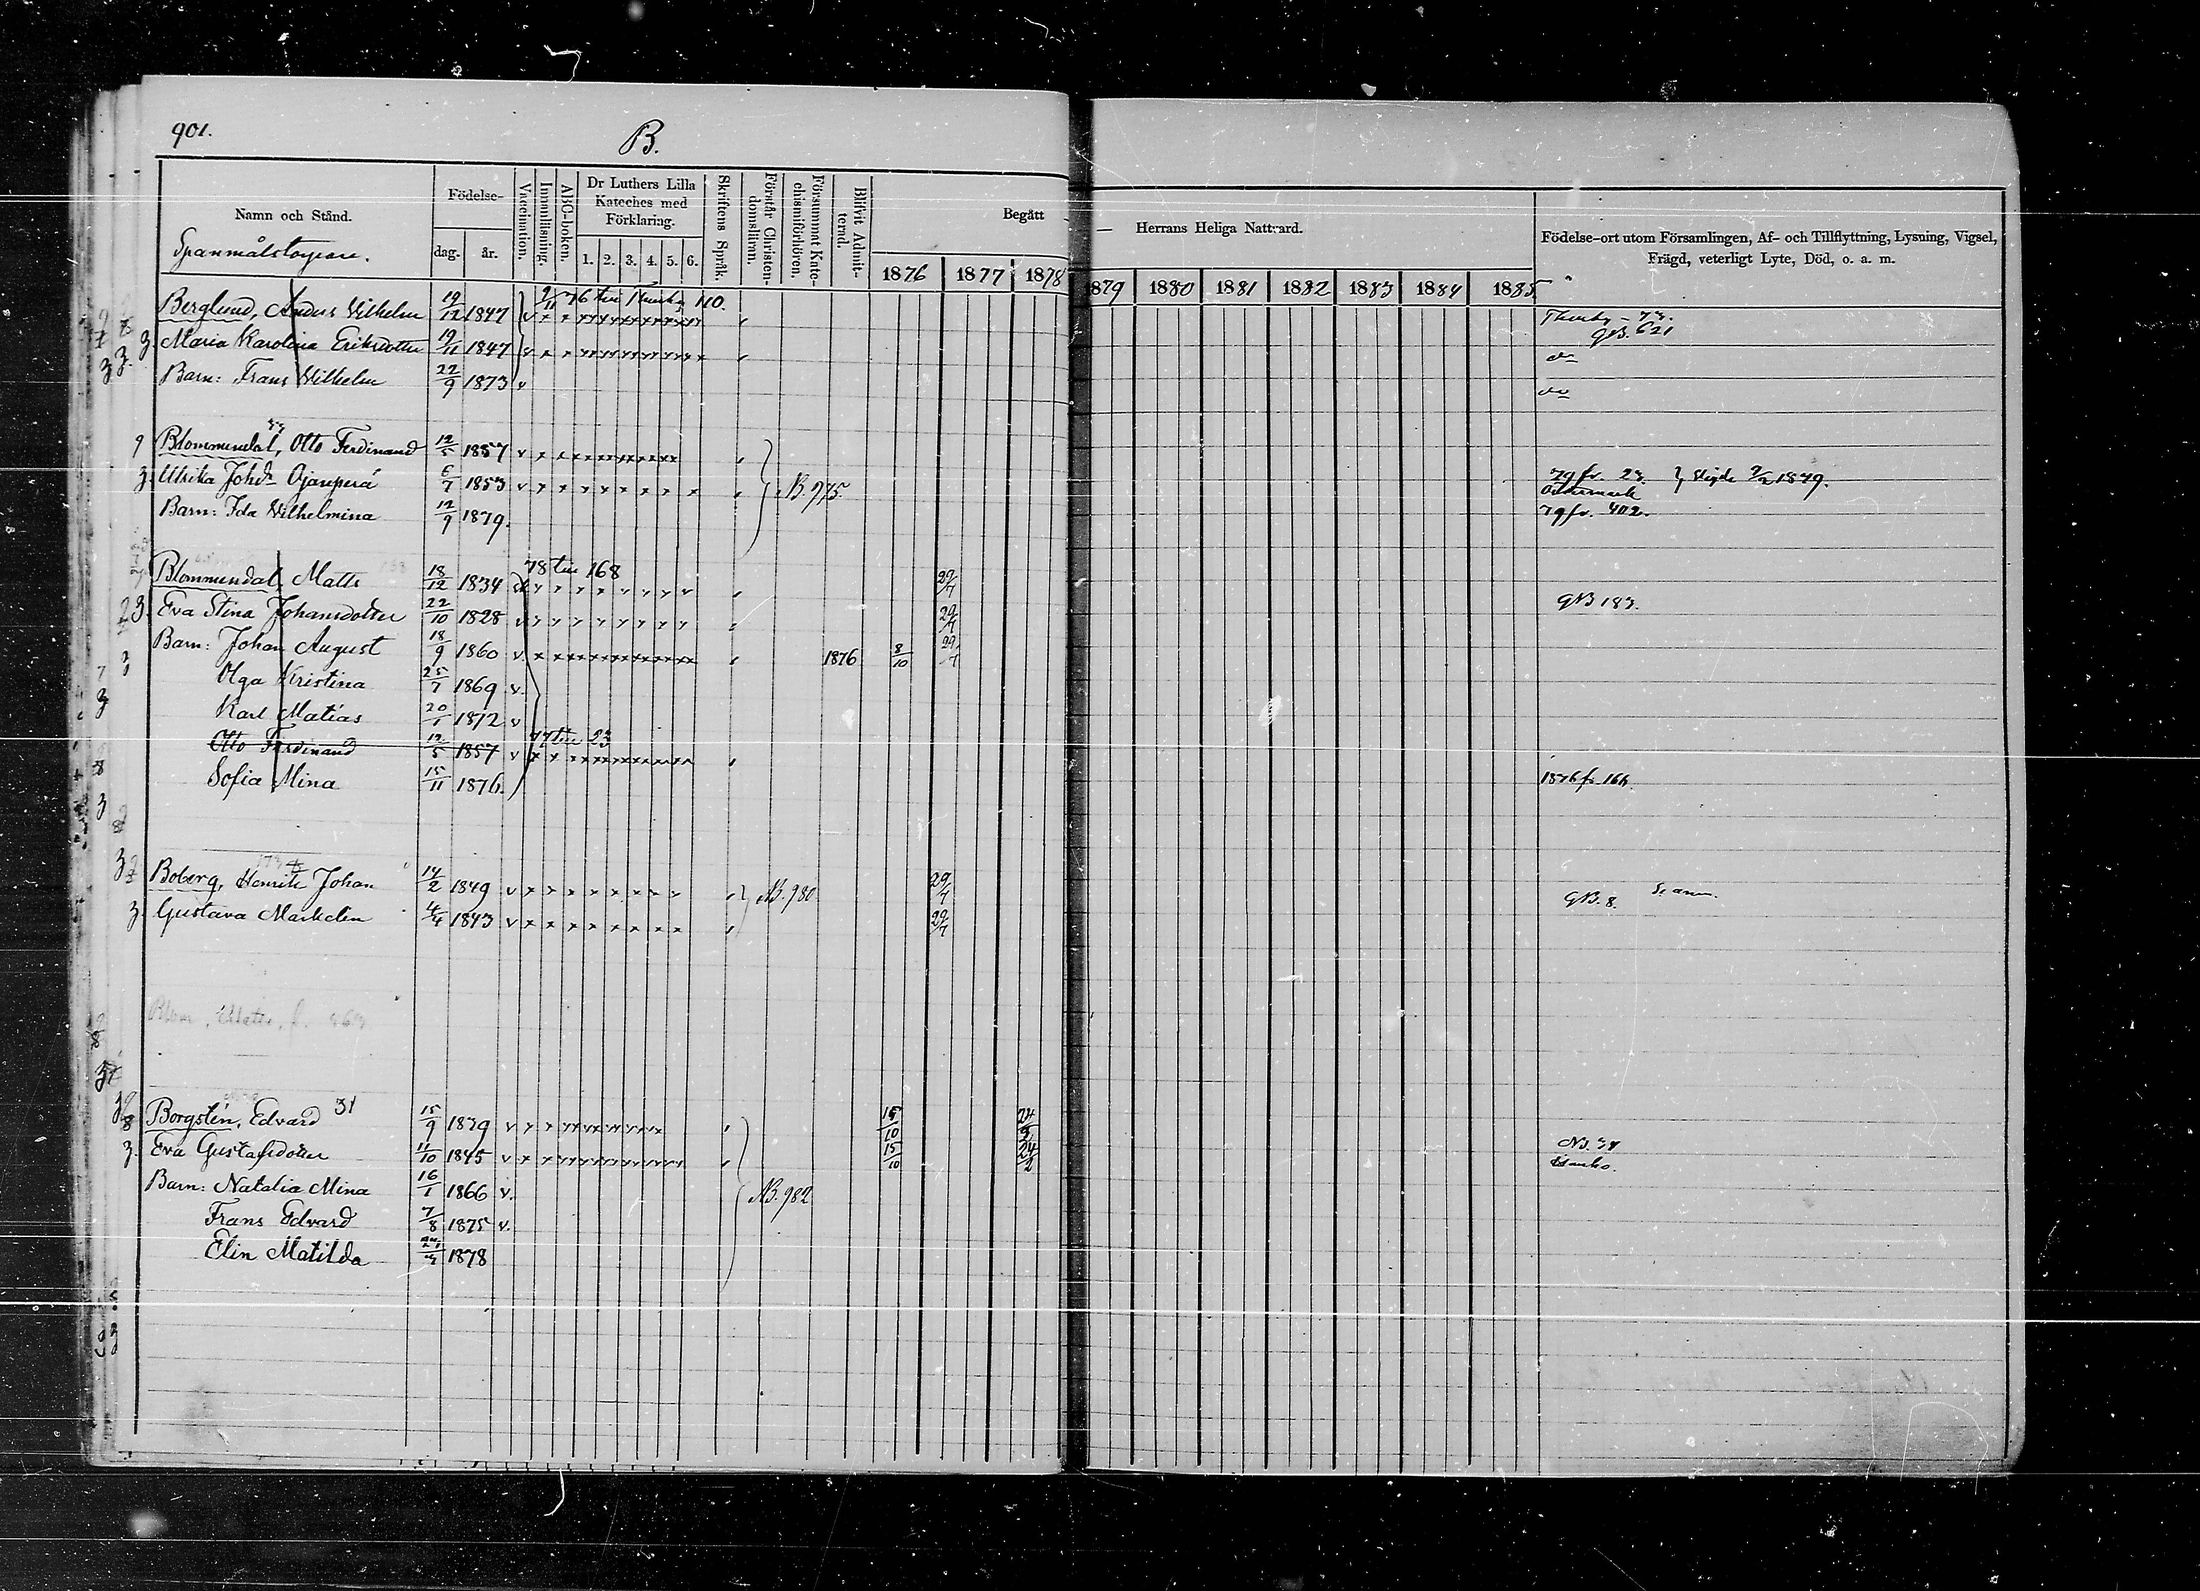 901.
B.
Namn och Stånd.
Födelse-
dag.
år.
Vaccination.
Innanläsning.
ABC-boken.
Dr Luthers Lilla
Kateches med
Förklaring.
1. 2. 3. 4. 5. 6.
Skriftens Språk.
Förstår Christen-
domsläran.
Försummat Kate-
chismiförhören.
Blifvit Admit-
terad.
Begått — Herrans Heliga Nattvard.
1876 1877 1878 1879 1880 1881 1882 1883 1884 1885
Födelse-ort utom Församlingen, Af- och Tillflyttning, Lysning, Vigsel,
Frägd, veterligt Lyte, Död, o. a. m.
Berglund, Anders Vilhelm 19/12 1847 v
GB. 621
Maria Karolina Eriksdotter 19/11 1847 v
Barn: Frans Wilhelm 22/9 1873 v
Blommendal, Otto Ferdinand 12/5 1857 v
Ulrika Johdr 6/7 1853 v NB. 975. 79 fr. 23. Vigde 9/2 1879.
Barn: Ida Wilhelmina 12/9 1879. 79 fr. 402.
78 till 168
Blommendal Matts 18/12 1834 29/7
Eva Stina Johansdotter 22/10 1828 v 29/7 GB 183.
Barn: Johan August 18/9 1860 v 1876 8/10 29/7
Olga Kristina 25/7 1869 v.
Karl Matias 20/1 1872 v
77 till 23
Otto Ferdinand 12/5 1857 v
Sofia Mina 15/11 1876.
Boberg, Henrik Johan 14/2 1849 v NB. 980 29/7 GB. 8.
Gustava Markelin 4/4 1843 v 29/7
Borgstén, Edvard 31 15/9 1839 v 15/10 24/2
Eva Gustafsdotter 11/10 1845 v 15/10 24/2
Barn: Natalia Mina 16/1 1866 v. NB. 982
Frans Edvard 7/8 1875 v.
Elin Matilda 1878